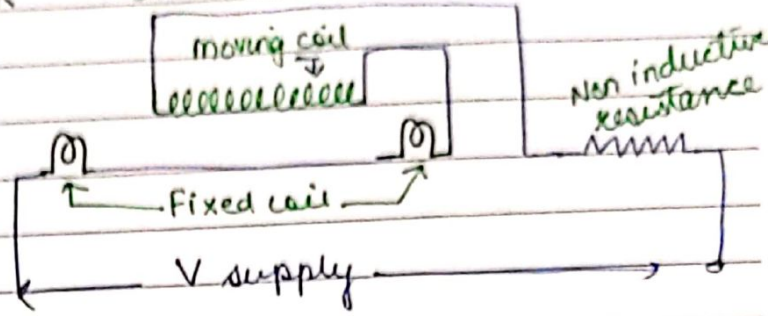 moving coil
Non inductive
resistance
Fixed coil
V supply